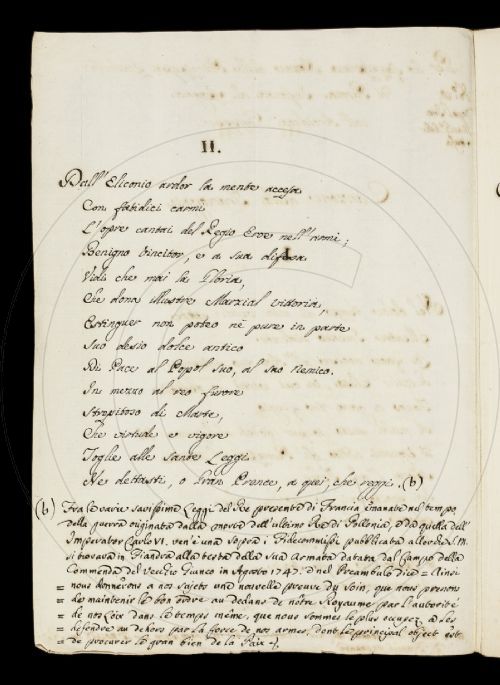 II.
Dall' Eliconio ardor la mente accesa
Con fatidici carmi
L'opre cantai del Regio Eroe nell'armi;
Benigno Vincitor, e a sua difesa
Vidi che mai la Gloria,
Che dona illustre Marzial vittoria,
Estinguer non poteo nè pure in parte
Suo desio dolce antico
Di Pace al Popol suo, al suo Nemico.
In mezzo al reo furore
Strepitoso di Marte,
Che virtude e vigore
Toglie alle Sante Leggi
Ne dettasti, o Gran Prence, a quei, che reggi. (b)
(b) Fra le varie savissime Leggi del Re presente di Francia emanate nel tempo
della guerra originata dalla morte dell' ultimo Re di Pollonia, e da quella dell'
Imperator Carlo VI. ven'è una sopra i Fidecommissi pubblicata allorchè S. M.
si trovava in Fiandra alla testa della sua Armata datata dal Campo della
Commenda del Vecchio Giunco in Agosto 1747. e nel Preambulo dice = Ainsi
= nous donnerons a nos sujets une nouvelle preuve du soin, que nous prenons
= de maintenir le bon ordre au dedans de nôtre Royaume par l'autorité
= de nos Loix dans le temps même, que nous sommes le plus occupez a les
= defendre au dehors par la force de nos armes, dont le principal object est
= de procurer le gran bien de la Paix